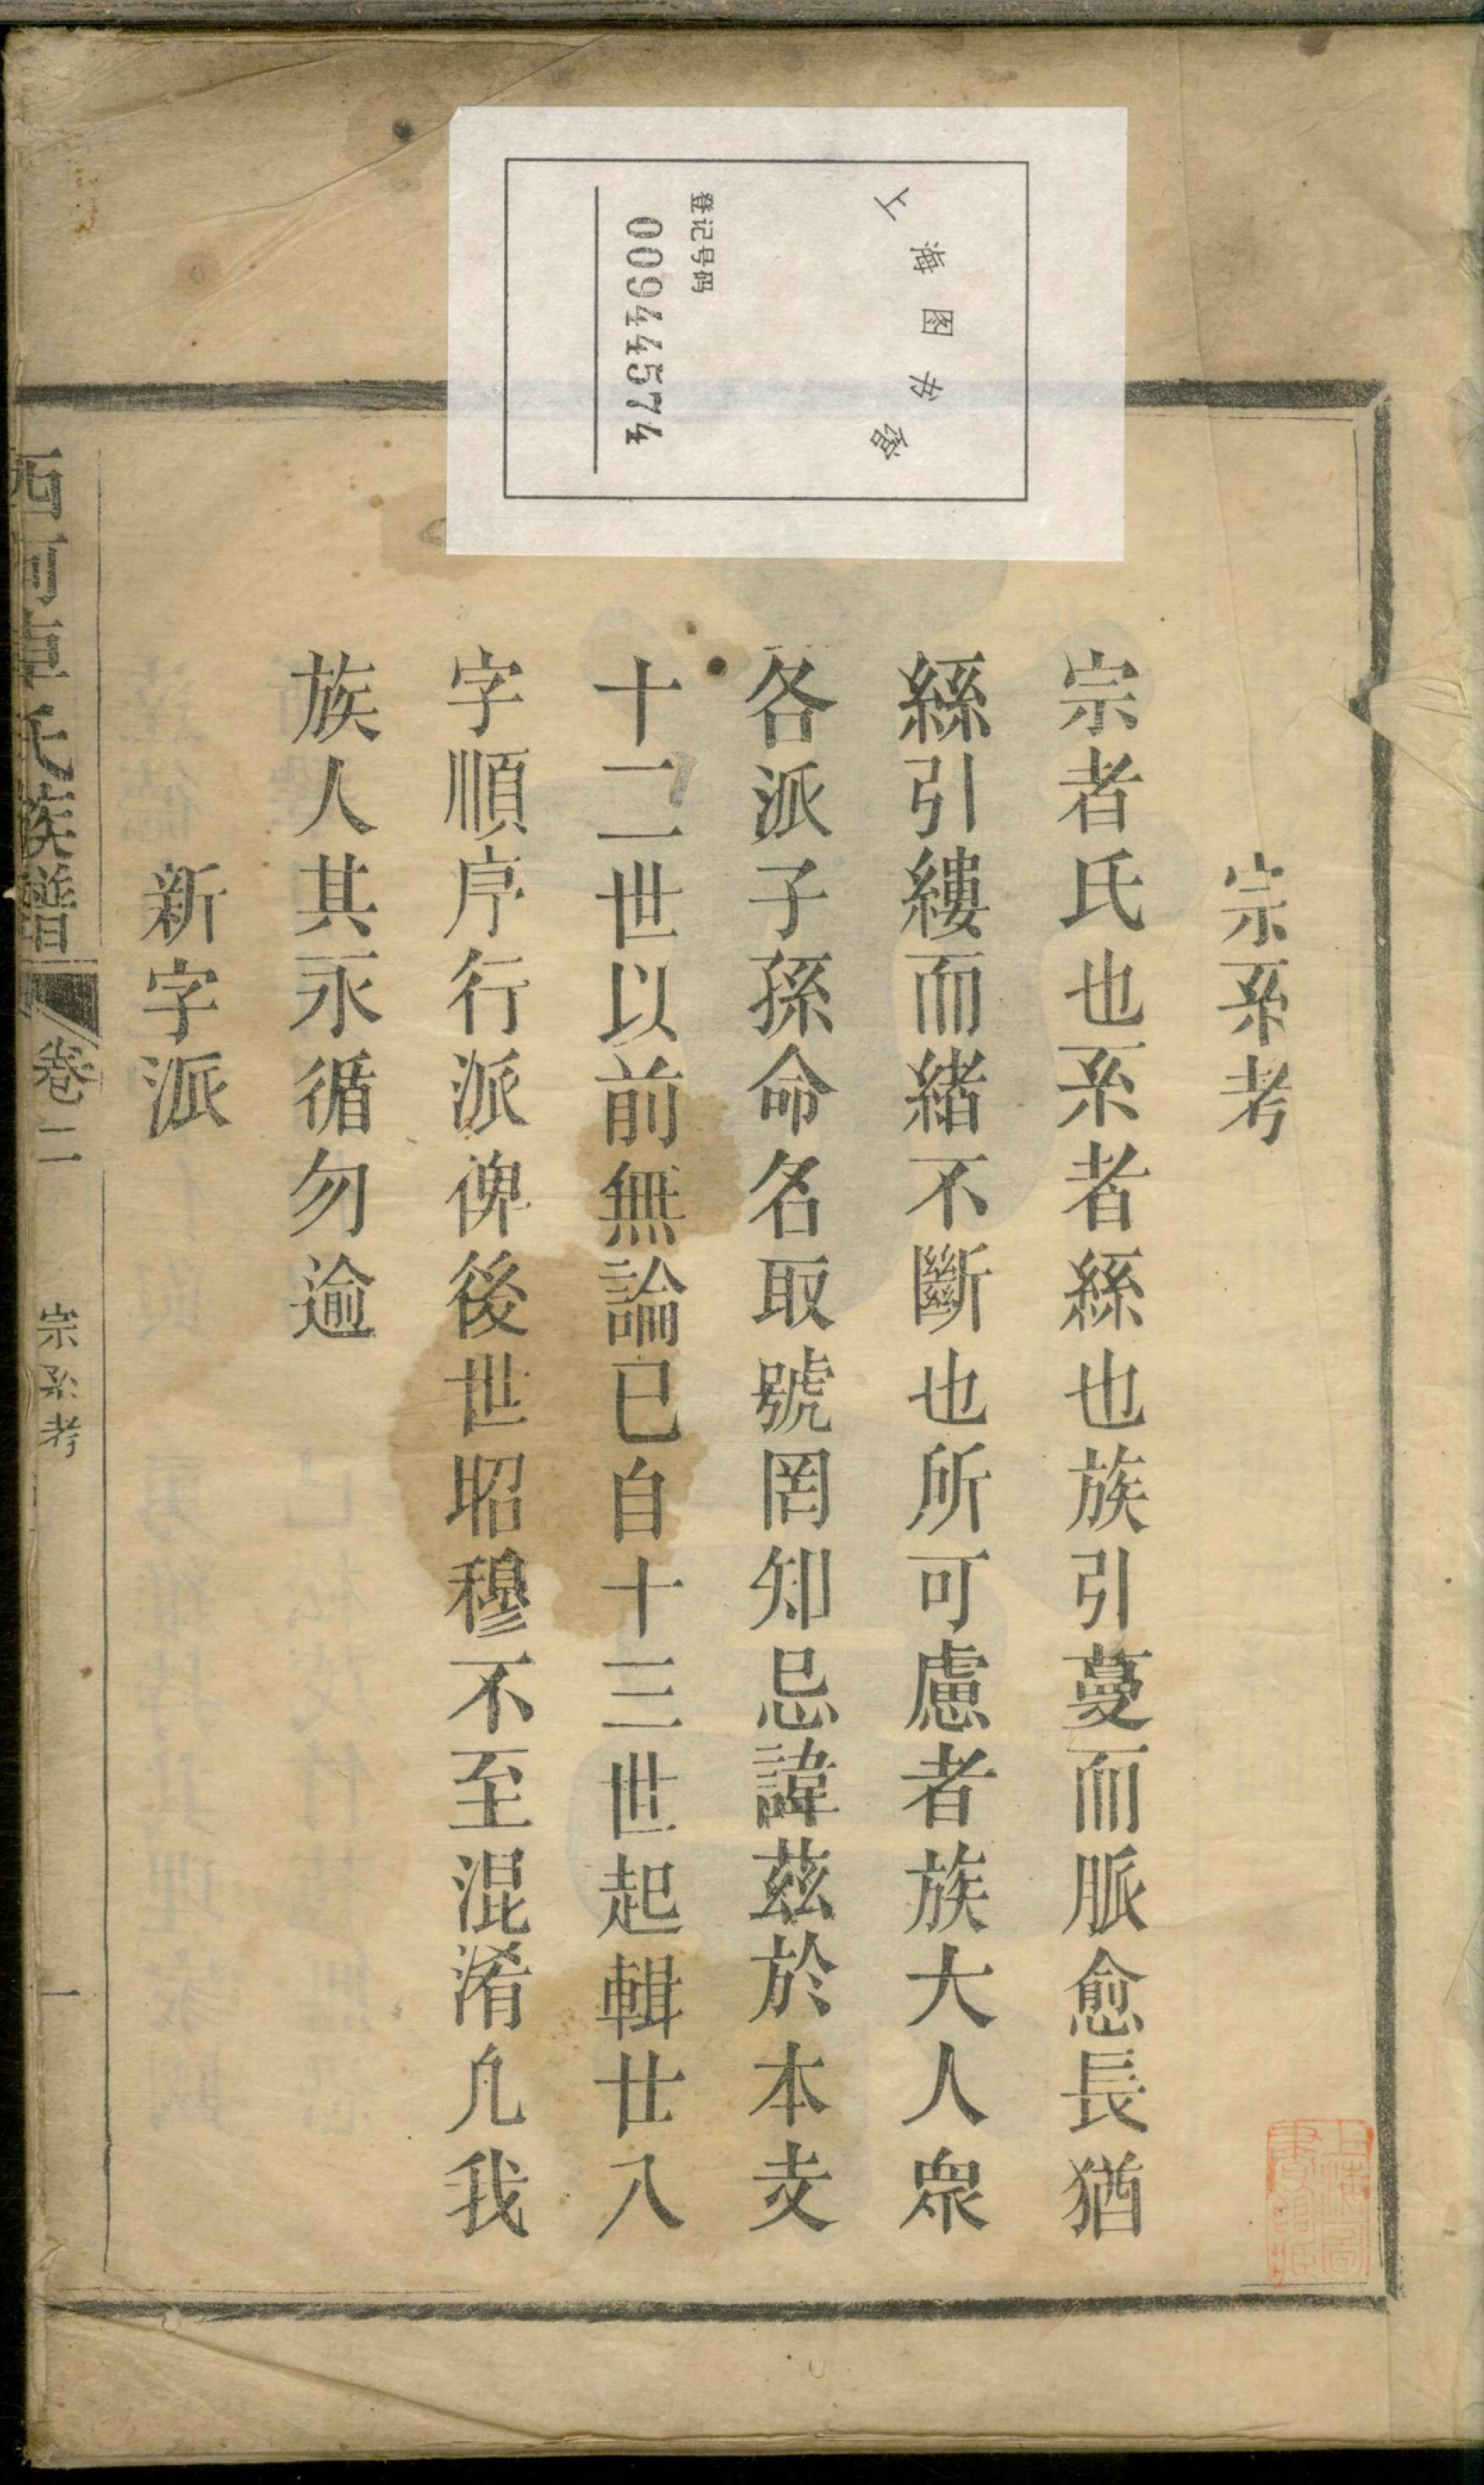 上海图书馆
登记号码
00944574
宗系考
宗者氏也系者絲也族引蔓而脈愈長猶
絲引縷而緒不斷也所可慮者族大人衆
各派子孫命名取號罔知忌諱茲於本支
十二世以前無論已自十三世起輯廿八
字順序行派俾後世昭穆不至混淆凡我
族人其永循勿逾
新字派
西河卓氏族譜 卷二 宗系考 一